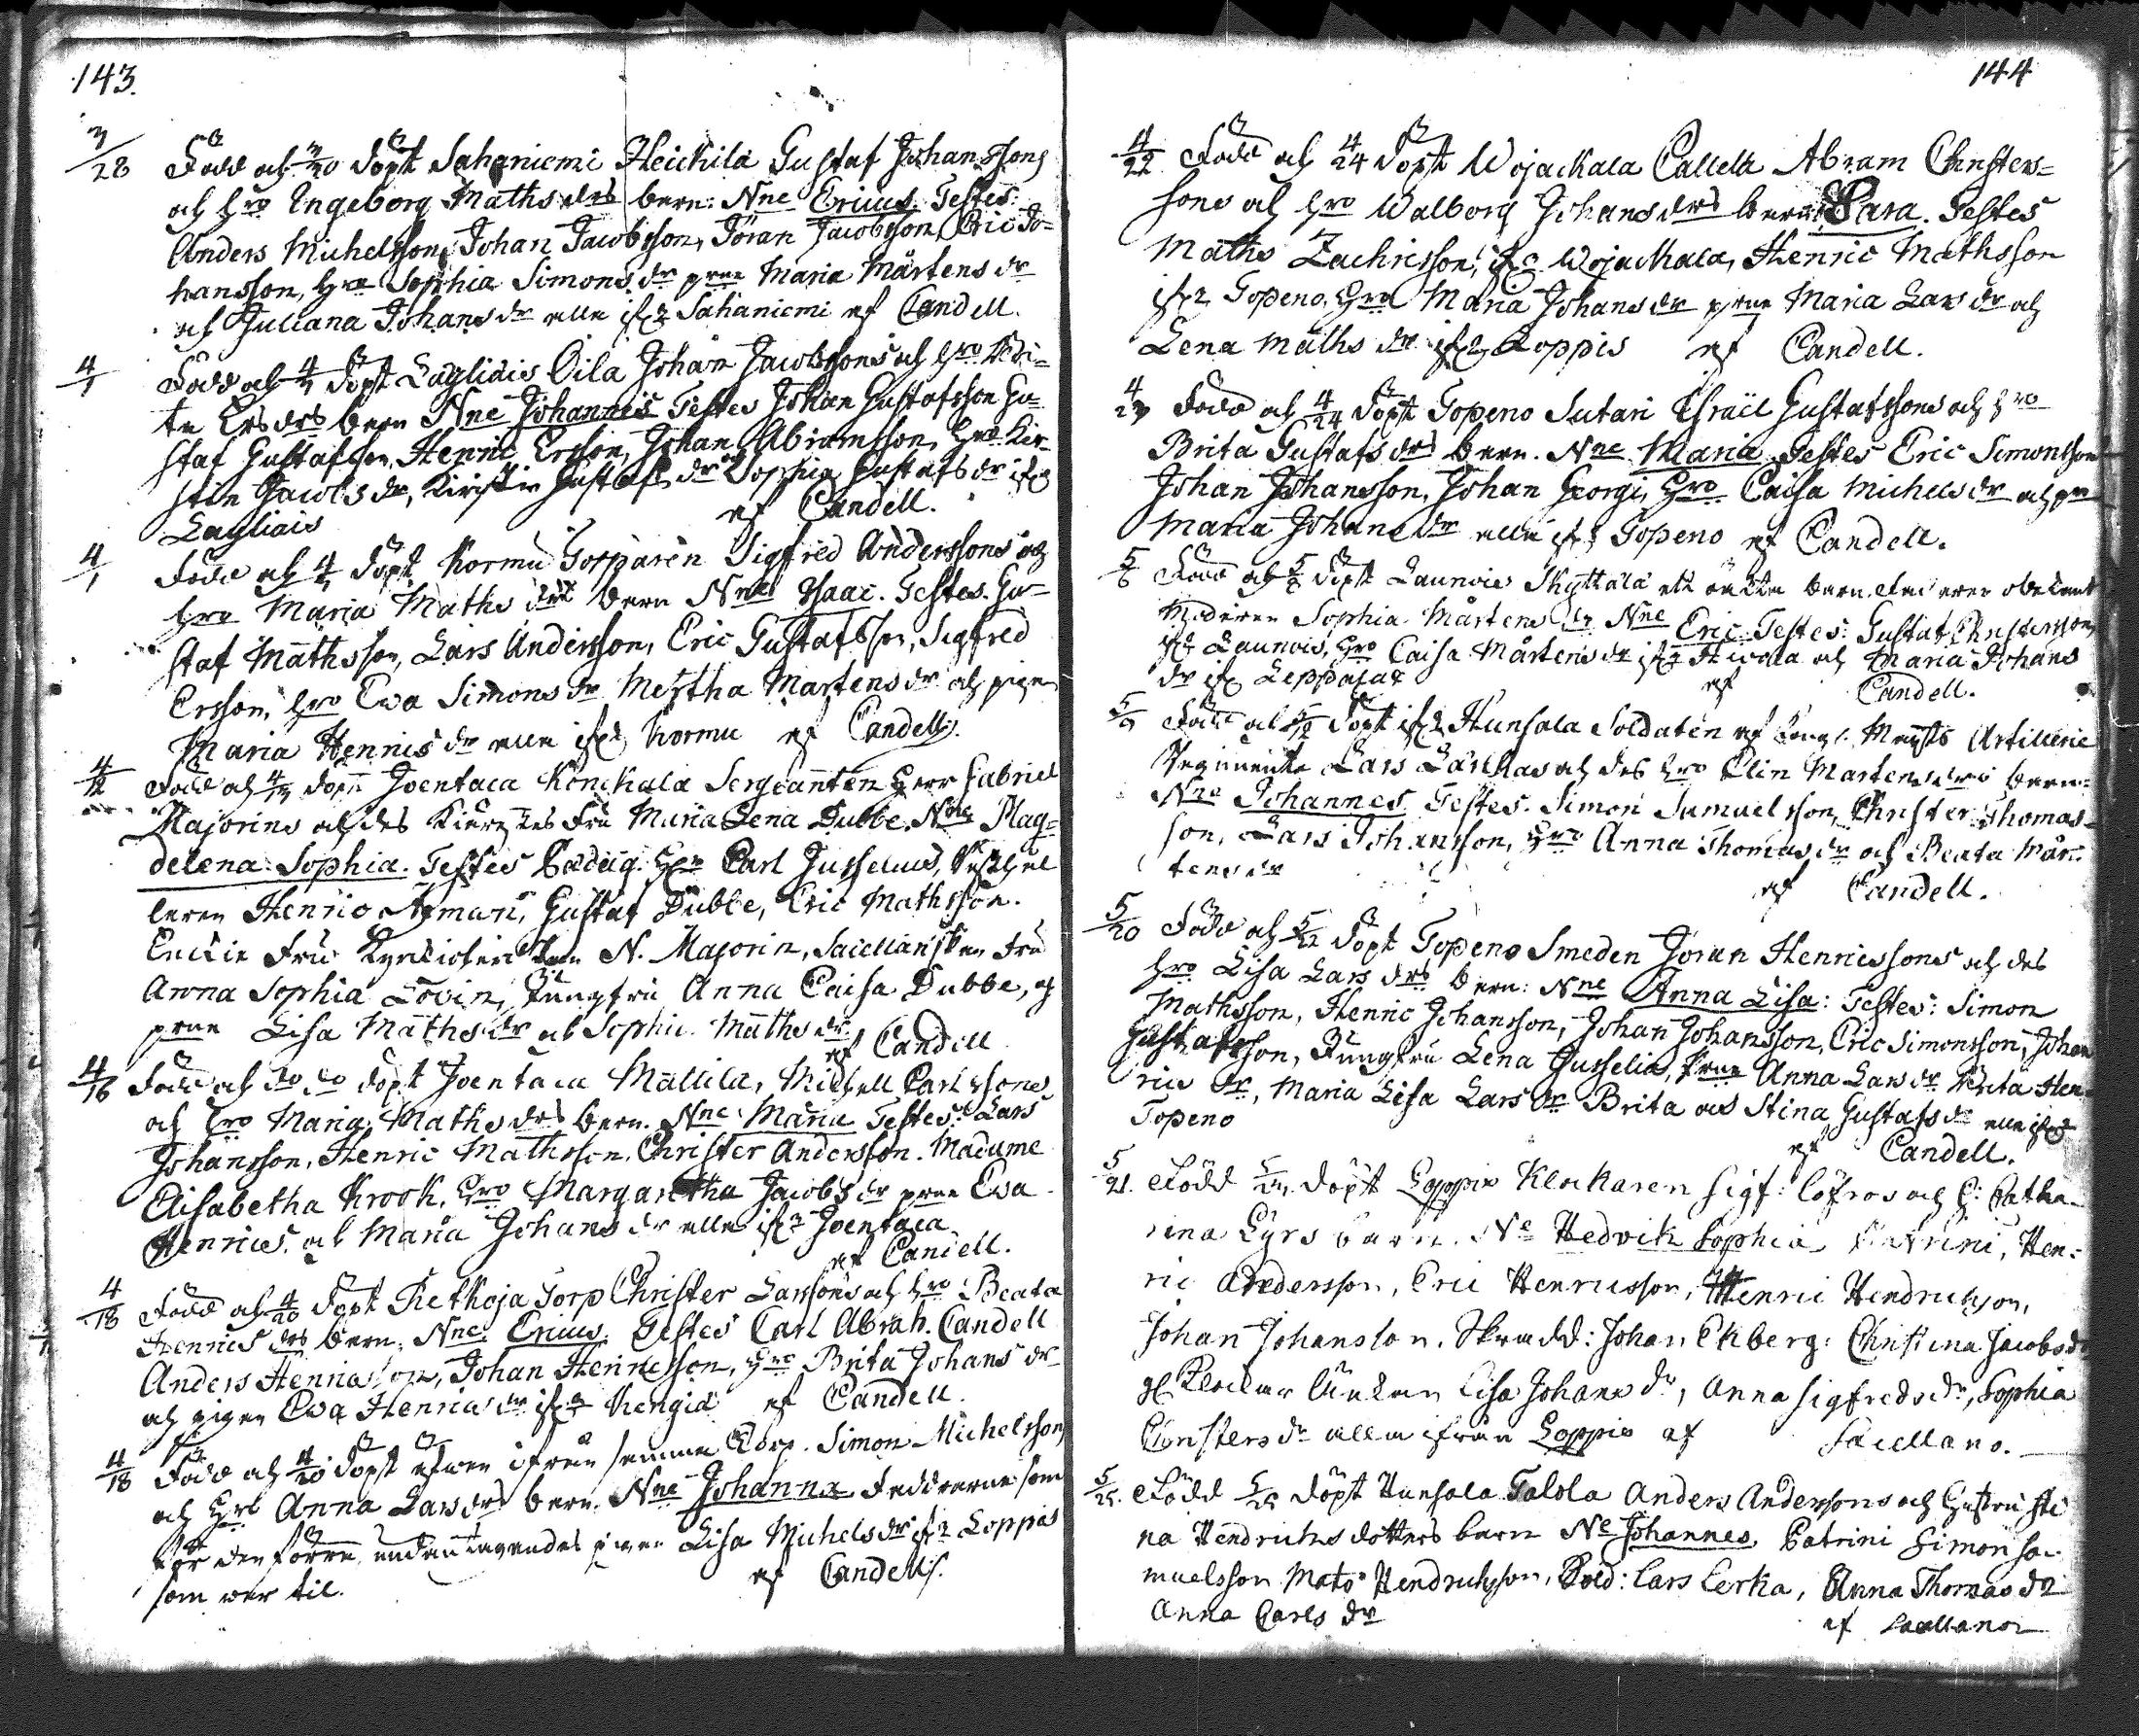 143.
3/28 Född och 3/30 döpt Sahaniemi Heickilä Gustaf Johanssons
och Hro Ingeborg Mathsdrs barn: Nne Ericus. Testes:
Anders Michelsson, Johan Jacobsson, Jöran Jacobsson, Eric Jo=
hansson, Hro Sophia Simonsdr pone Maria Mårtensdr
och Juliana Johansdr alla ifr Sahaniemi af Candell.
4/1 Född och 4/ döpt Lagliais Oila Johan Jacobssons och Hro Bri=
ta Ersdrs barn Nne Johannes Testes Johan Gustafsson Gu=
staf Gustafsson, Henric Ersson, Johan Abramsson, Hro Kir=
stin Jacobsdr, Kirstin Gustafsdr och Sophia Gustafsdr ifr
Lagliais af Candell.
4/1 Född och 4/ döpt Kormu Torparen Sigfred Anderssons och
Hro Maria Mathsdrs barn Nne Isaac. Testes. Gu=
staf Mathsson, Lars Andersson, Eric Gustafsson, Sigfred
Ersson, Hro Ewa Simonsdr Mertha Martensdr och pigan
Maria Henricsdr alla ifr Kormu af Candell.
4/12 Född och 4/ döpt Joentaca Könckälä Sergeanten Herr Gabriel
Majorins och des Kiäreztes Fru Maria Lena Dubbe. Nne Mag=
delena Sophia. Testes Pædag. Hr Carl Jusselius,
Henric Agman, Gustaf Dubbe, Eric Mathsson.
Enckie Fru N. Majorin, Saicllanskan Fru
Anna Sophia Lovin, Jungfru Anna Caisa Dubbe, och
pone Lisa Mathsdr och Sophia Mathsdr
af Candell
4/16 Född och do do döpt Joentaca Mällilä, Michell Carlssons
och Hro Maria Mathsdrs barn. Nne Maria Testes: Lars
Johansson, Henric Mathsson, Christer Andersson. Madame
Elisabetha Krook, Hro Margaretha Jacobsdr pone Ewa
Henrics. och Maria Johansdr alla ifr Joentaca
af Candell.
4/18 Född och 4/20 döpt Rethoja Torp Christer Larssons och Hro Beata
Henricsdrs barn, Nne. Ericus. Testes Carl Abrah. Candell
Anders Henricsson, Johan Henricsson, Hro Brita Johansdr
och pigan Ewa Henricsdr ifr Kengiä af Candell.
4/18 Född och 4/20 döpt ifrån samma Torp. Simon Michelssons
och Hro Anna Larsdrs barn. Nne Johanna Faddrarne som
för den förre undantagandes pigan Lisa Michelsdr ifr Loppis
som war til. af Candell.
144
4/22 Född och 4/24 döpt Wojackala Callela Abram Christers=
sons och Hro Walborg Johansdrs barn Sara. Testes
Maths Zachrisson, ifr Wojackala, Henric Mathsson
ifr Topeno, Hro Maria Johansdr pone Maria Larsdr och
Lena Mathsdr ifr Loppis af Candell.
4/23 Född och 4/24 döpt Topeno Sutari Israël Gustafssons och Hro
Brita Gustafsdrs barn. Nne Maria Testes Eric Simonsson
Johan Johansson, Johan Georgi, Hro Caisa Michelsdr och pn
Maria Johansdr alla ifr Topeno af Candell.
5/6 Född och 5/8 döpt Launois Skyttälä ett oäckta barn. Fadren obekant
Modren Sophia Mårtensdr Nne Eric. Testes: Gustaf Christersson,
ifr Launois, Hro Caisa Mårtensdr ifr Hirvola och Maria Johans
dr ifr Leppälax af Candell.
5/9 Född och 5/ döpt ifr Hunsala Soldaten af Kongl. Maijts Artillerie
Regimente Lars Lärckas och des Hro Elin Martensdrs barn=
Nne Johannes Testes. Simon Samuelsson, Christer Thomas=
son, Lars Johansson, Hro Anna Thomasdr och Beata Mår=
tensdr af Candell.
5/20 Född och 5/22 döpt Topeno Smeden Jöran Henricssons och des
Hro Lisa Larsdrs barn: Nne Anna Lisa: Testes: Simon
Mathsson, Henric Johansson, Johan Johansson, Eric Simonsson, Johan
Gustafsson, Jungfru Lena Jusselia, Pone Anna Larsdr Brita Hen=
ricsdr, Maria Lisa Larsdr Brita och Stina Gustafsdr alla ifr
Topeno af Candell.
5/21. Född 5/ döpt Loppis Klockaren Sigf: Löfros och H: Catha=
rina Lyrs barn. Ne Hedvik Sophia Patrini, Hen=
ric Andersson, Eric Henricsson, Henric Hendrichson,
Johan Johansson. Skradd: Johan Ekberg: Christina Jacobsdr
gl Klockar Änkan Lisa Johansdr, Anna Sigfredsdr, Sophia
Christersdr alla ifrån Loppis af Saicllano.
5/25. Född 5/ döpt Hunsala Talola Anders Anderssons och Hustru Sti
na Hendrichsdotters barn Ne Johannes. Patrini Simon Sa=
muelsson Mats Hendrichsson, Sold: Lars Lerka, Anna Thomasdr
Anna Carlsdr af Saicllano